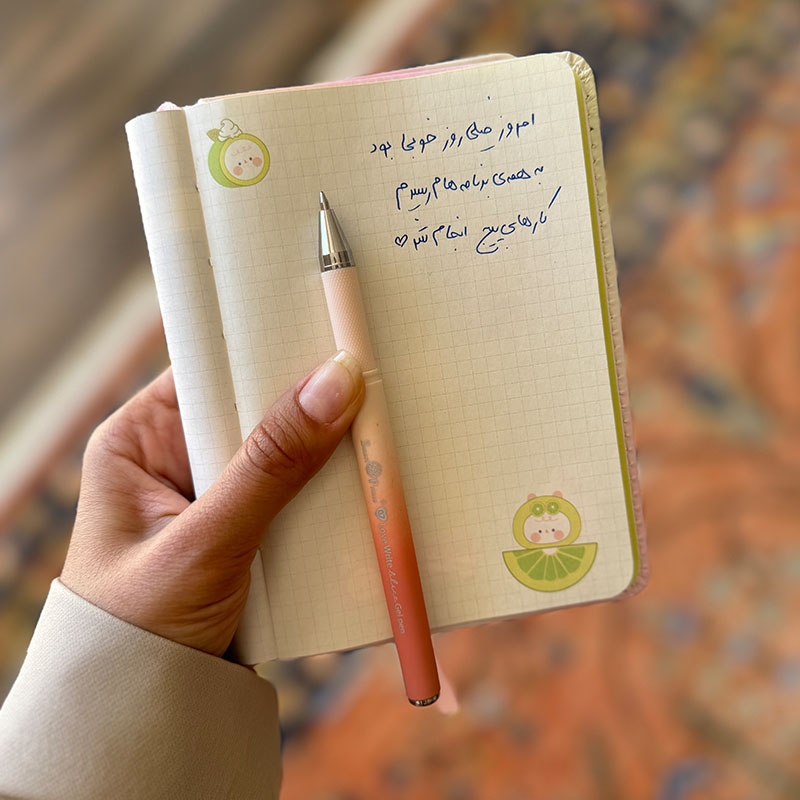 امروز خیلی روز خوبی بود
به همه‌ی برنامه هام رسیدم
کارهای پیج انجام شد ♡
Write
Gel pen